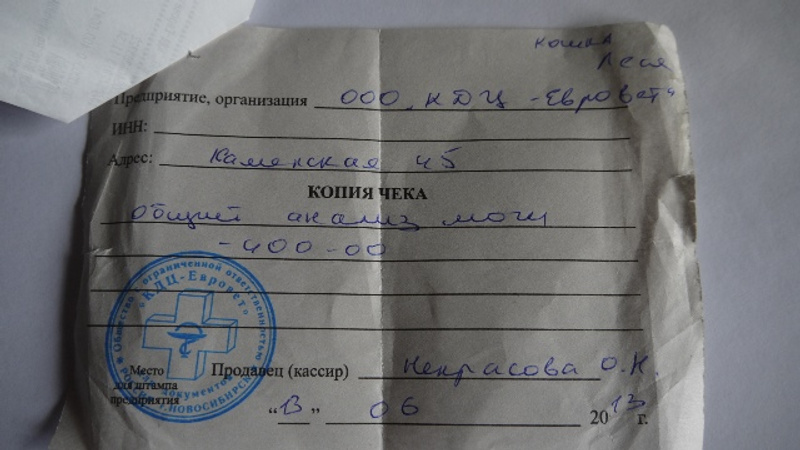 кошка
Леся
Предприятие, организация ООО „КДЦ -Евровет"
ИНН:
Адрес: Каменская 45
КОПИЯ ЧЕКА
общий анализ мочи
-400-00
Общество с ограниченной ответственностью
"КДЦ-Евровет"
документов
г.НОВОСИБИРСК
Место
для штампа
предприятия
Продавец (кассир) Некрасова О.Н.
"13" 06 2013 г.